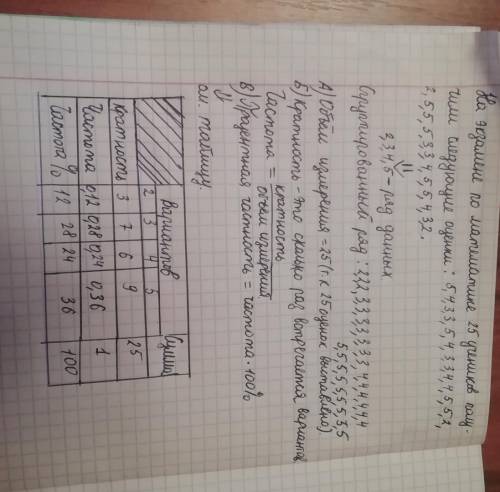 На экзамене по математике 25 учеников полу-
чили следующие оценки: 5,4,3,3,5,4,3,3,4,4,5,5,2,
2,5,5,5,3,3,4,5,5,4,3,2.
2,3,4,5 - ряд данных
Сгруппированный ряд: 2,2,2,3,3,3,3,3,3,3,4,4,4,4,4,4
5,5,5,5,5,5,5,5,5
А) Объём измерения = 25 (т.к 25 оценок выставлено)
Б) Кратность - это сколько раз встречается варианта
Частота = кратность
объём измерения
В) Процентная частность = частота · 100%
см. таблицу.
Вариантов Сумма
2 3 4 5
кратность 3 7 6 9 25
Частота 0,12 0,28 0,24 0,36 1
Частота % 12 28 24 36 100